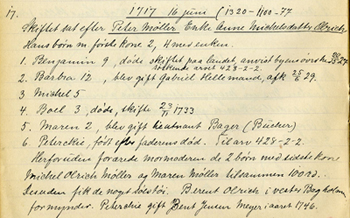 17. 1717 16 juni (1320-Heo-77
Skiftet sat efter Peter Møller. Enke Anne Michelsdatter Olrich
Hans børn m første kone 2, 4 med enken.
1. Benjamin 9, døde skiftet paa landet, anvist by 28/6 27
arv 428-2-2.
2. Barbra 12, blev gift Gabriel Hellemand, afk 25/6 29.
3. Michel 5
4. Boel 3, døde, skifte 23/11 1733
5. Maren 2, blev gift lieutnant Bager (Bücher)
6. Petercke, født efter faderens død. Til arv 428-2-2.
Herforuden forærede mormoderen de 2 børn med sidste kone
Michel Olrich Møller og Maren Møller tilsammen 100 rd.
Desuden fik de noget bestøi. Berent Olrich i vester Bagholm
formynder. Petercke gift Bent Jensen Meyer i aaret 1746.